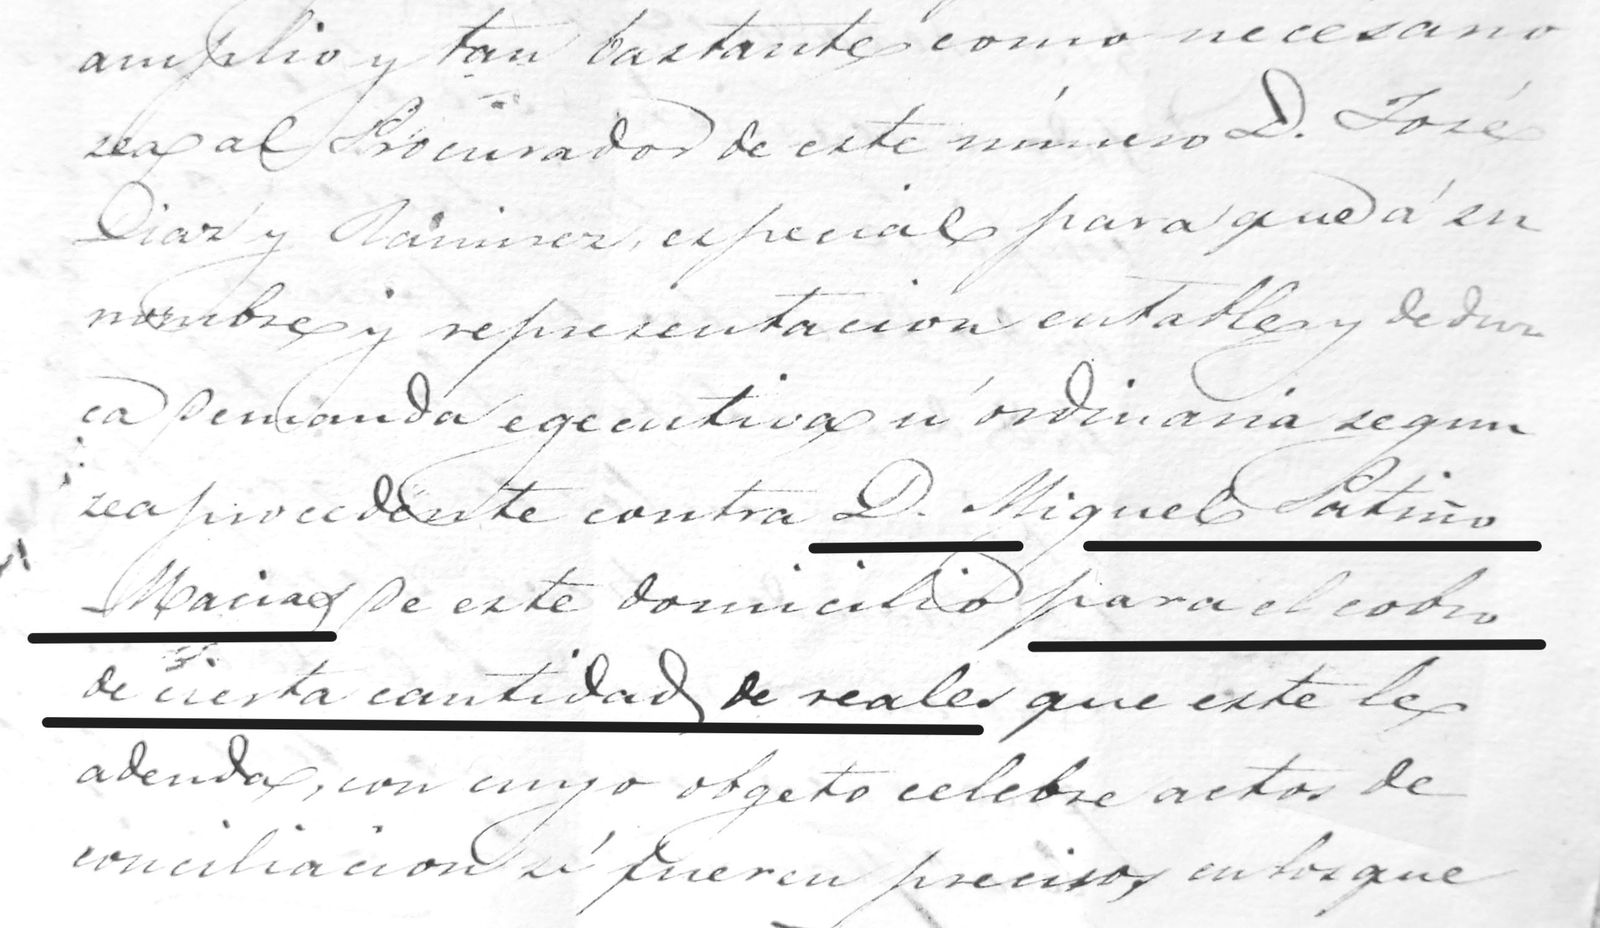 amplio y tan bastante como necesario
sea al Procurador de este número D. José
Diaz y Ramirez, especial para que á su
nombre y representacion entable y deduz
ca demanda egecutiva u ordinaria segun
sea procedente contra D. Miguel Patiño
Macias de este domicilio para el cobro
de cierta cantidad de reales que este le
adeuda, con cuyo obgeto celebre actos de
conciliacion si fueren precisos, en los que